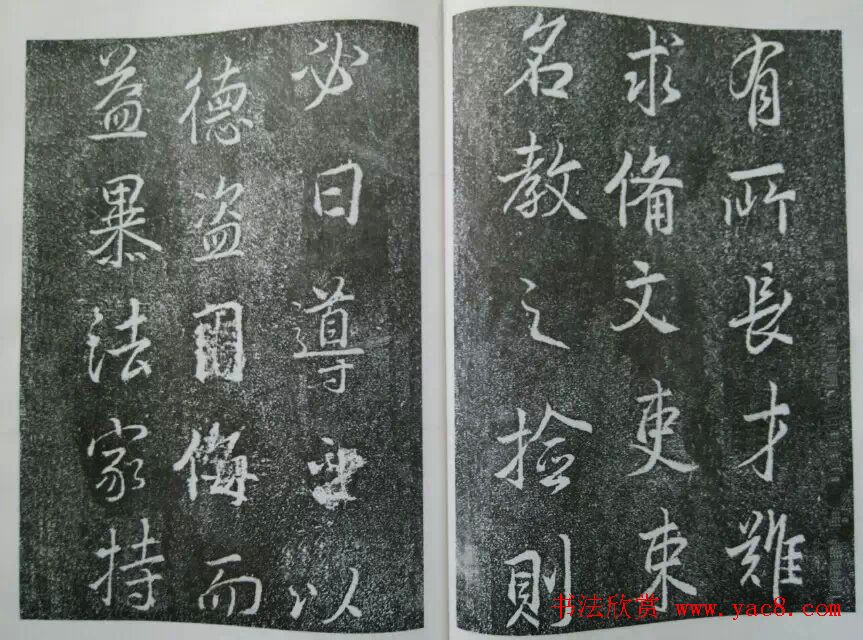 有所長才難
求備文吏束
名教之撿則
必曰導以
德盗侮而
益暴法家持
书法欣赏 www.yac8.com